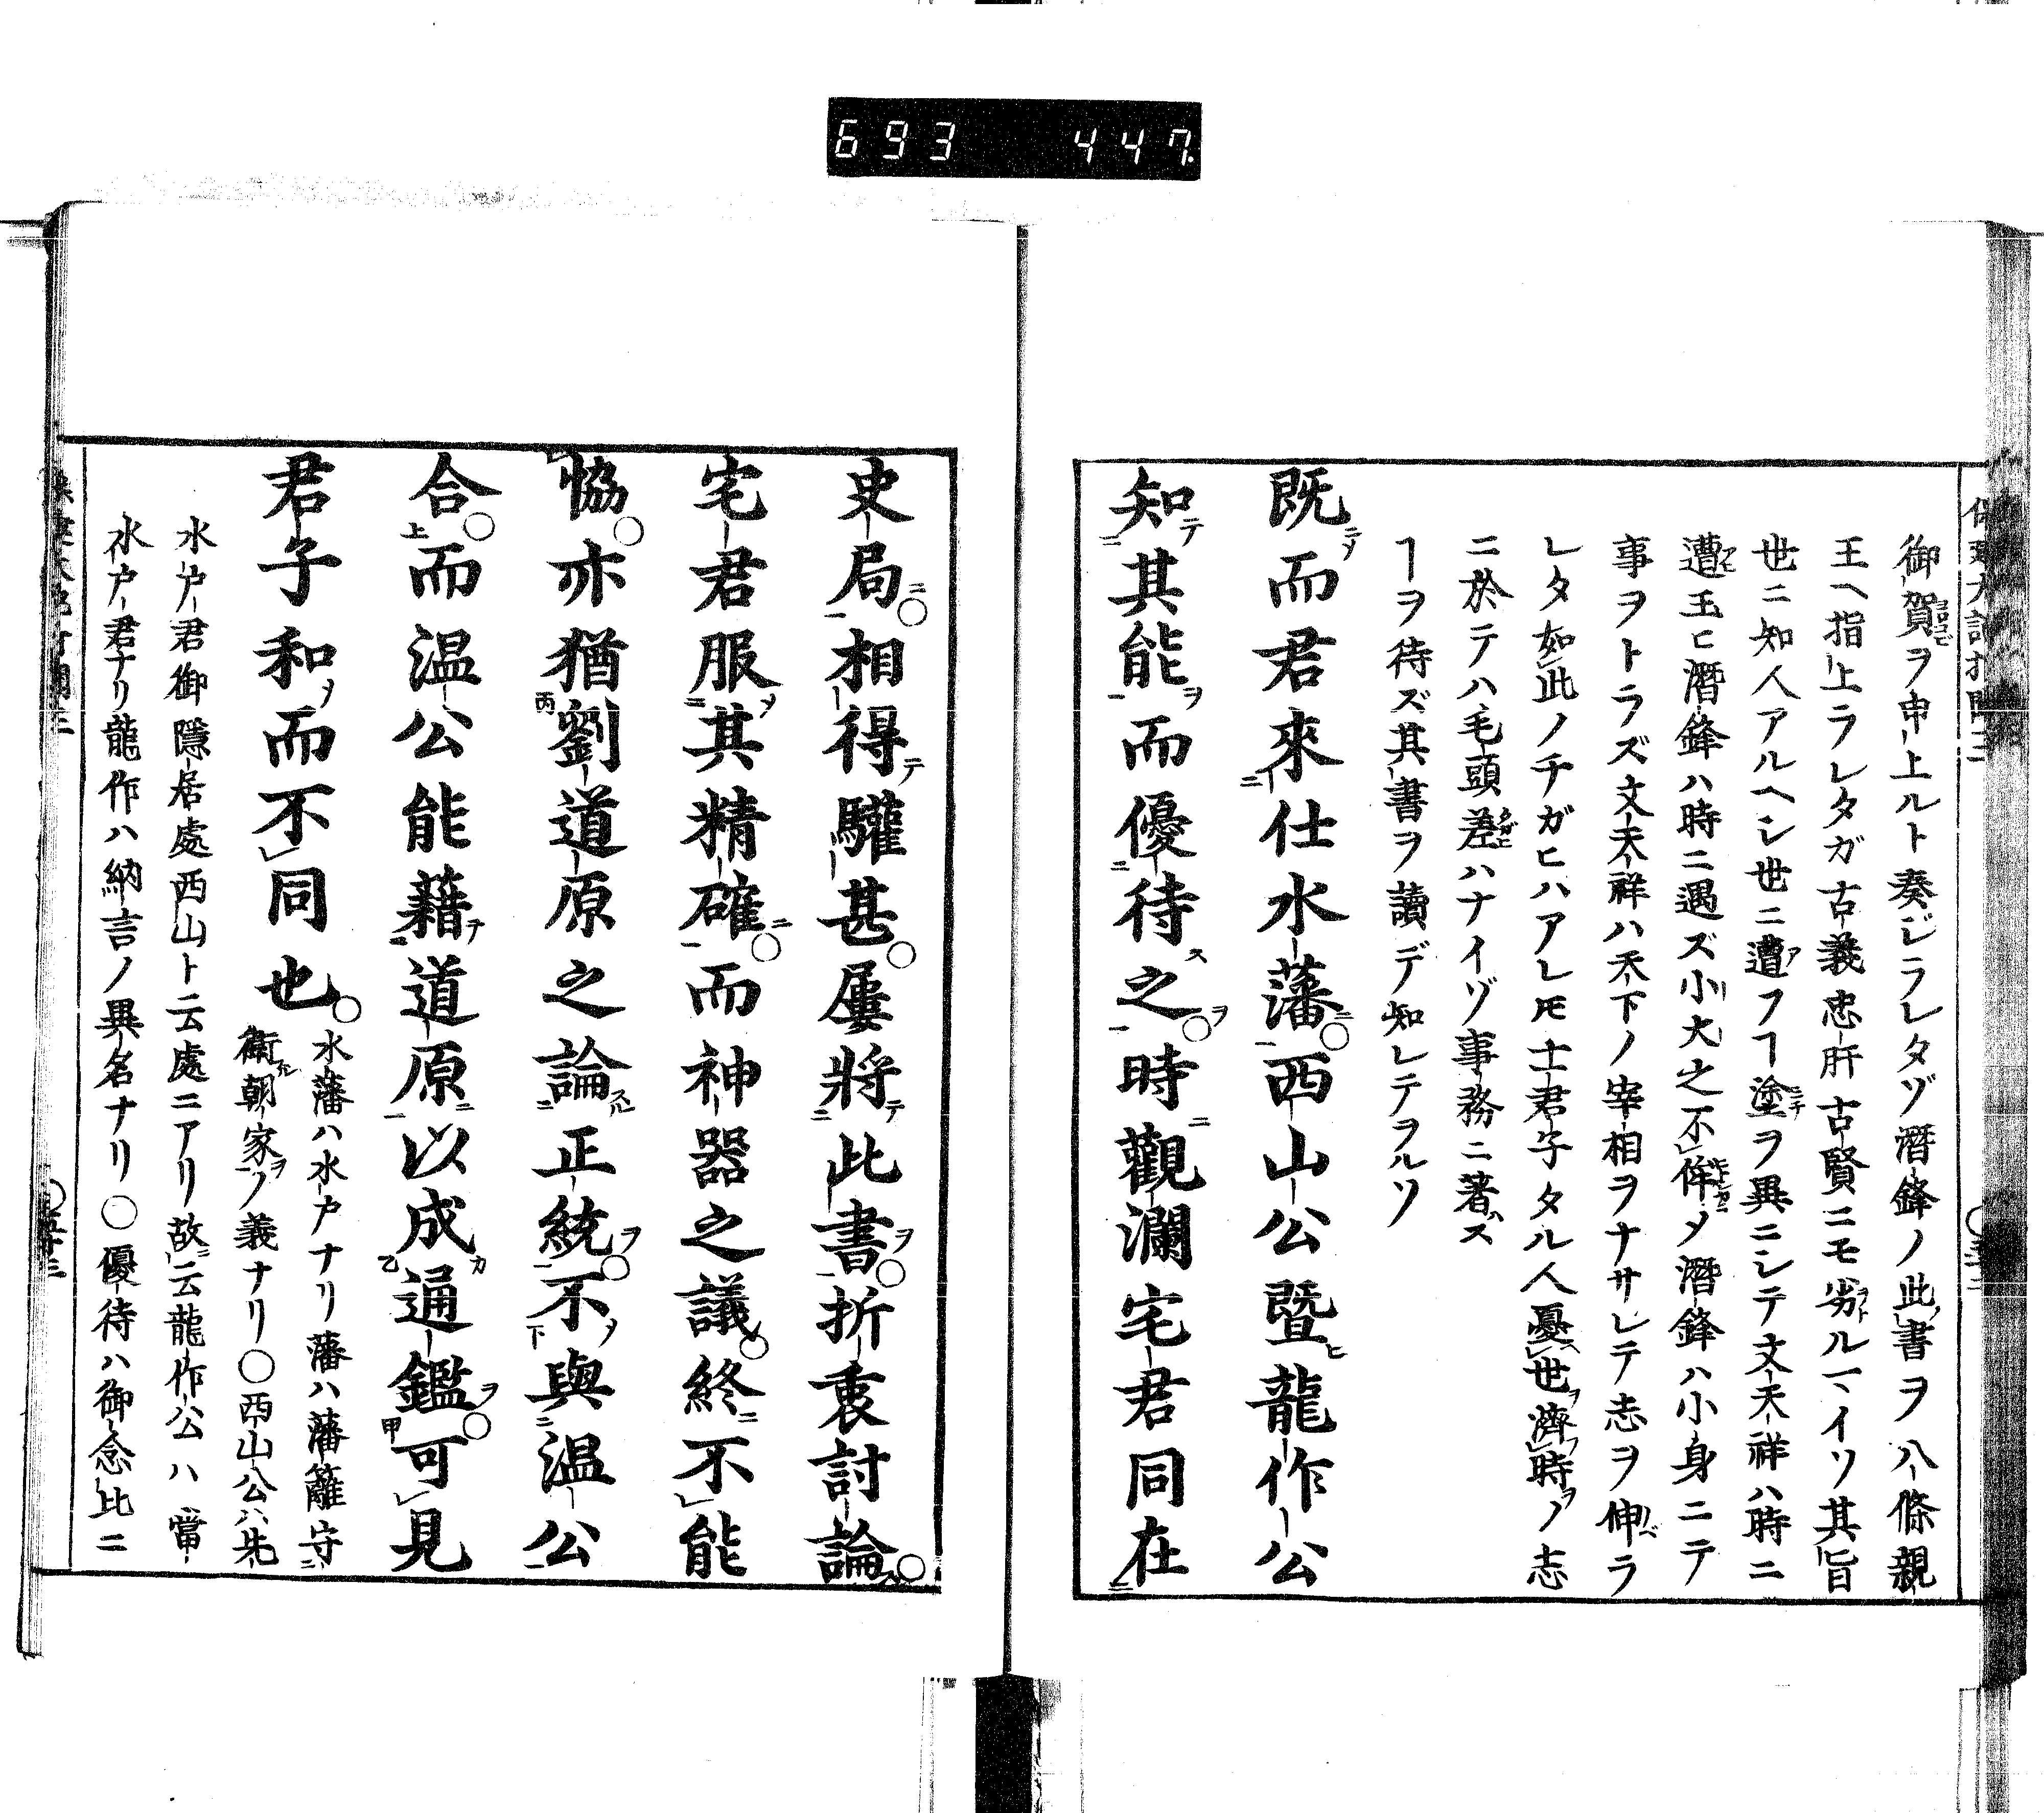 693 447.
御賀ヲ申上ルト奏ゼラレタゾ潛鋒ノ此書ヲ八條親
王ヘ指上ラレタガ古義忠肝古賢ニモ劣ルマイソ其旨
世ニ知人アルヘシ世ニ遭フヿ塗ヲ異ニシテ文天祥ハ時ニ
遭玉ヒ潛鋒ハ時ニ遇ズ小大之不侔メ潛鋒ハ小身ニテ
事ヲトラズ文天祥ハ天下ノ宰相ヲナサレテ志ヲ伸ラ
レタ如此ノチガヒハアレ𪜈士君子タル人憂世濟時ノ志
ニ於テハ毛頭差ハナイゾ事務ニ著ス
ヿヲ待ズ其書ヲ讀デ知レテヲルソ
既而君來仕水藩西山公暨龍作公
知其能而優待之時觀瀾宅君同在
史局相得驩甚屢將此書折衷討論
宅君服其精確而神器之議終不能
恊亦猶劉道原之論正統不與温公
合而温公能藉道原以成通鑑可見
君子和而不同也
水藩ハ水戸ナリ藩ハ藩籬守
衛朝家ノ義ナリ○西山公ハ先
水戸君御隱居處西山ト云處ニアリ故云龍作公ハ當
水戸君ナリ龍作ハ納言ノ異名ナリ○優待ハ御念比ニ